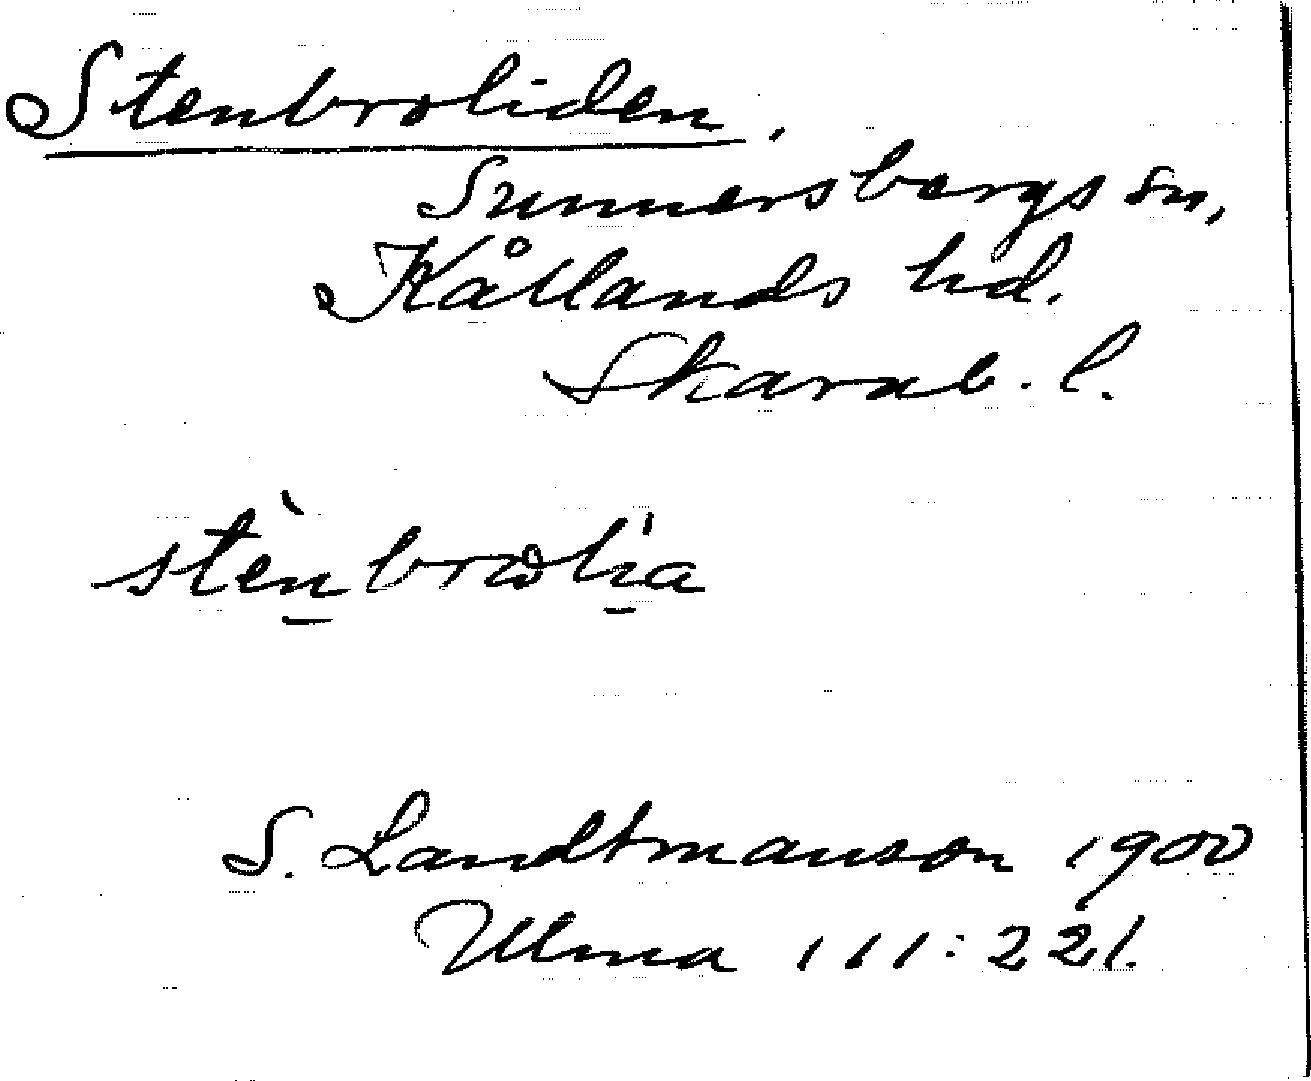 Stenbroliden.
Sunnersbergs sn,
Kållands hd.
Skarab. l.
stèn brωlia
S. Landtmanson 1900
Ulma 111:221.